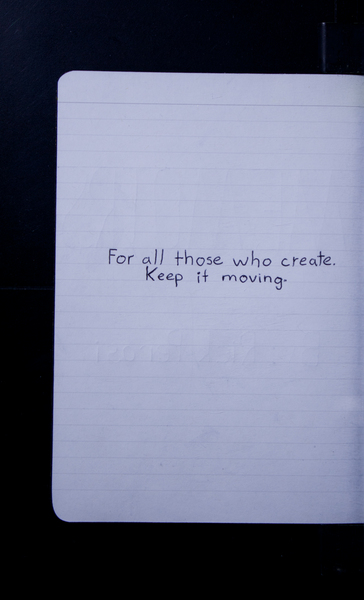 For all those who create.
Keep it moving.